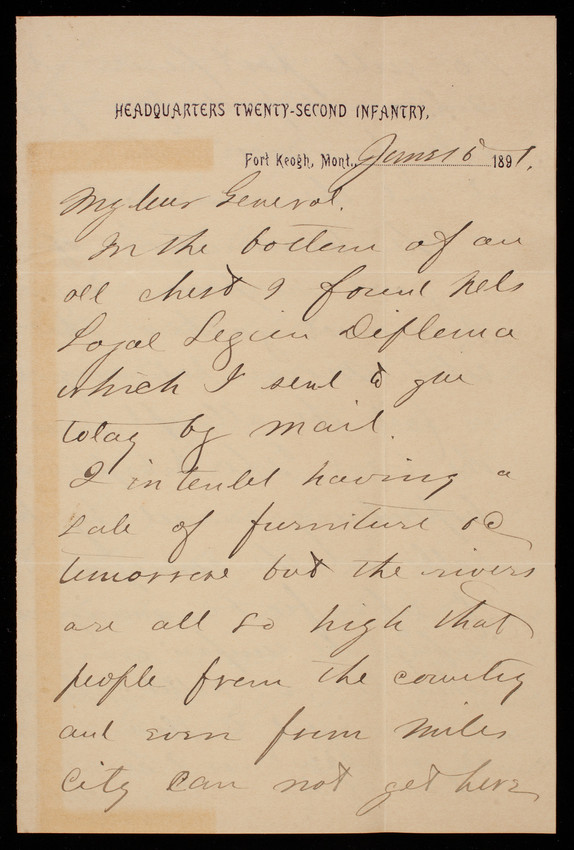 HEADQUARTERS TWENTY-SECOND INFANTRY,
Fort Keogh, Mont., June 16 1891.
My dear General.
In the bottom of an
old chest I found Nels
Loyal Legion Diploma
which I send to you
today by mail.
I intended having a
sale of furniture &c
tomorrow but the rivers
are all so high that
people from the country
and even from Miles
City can not get here